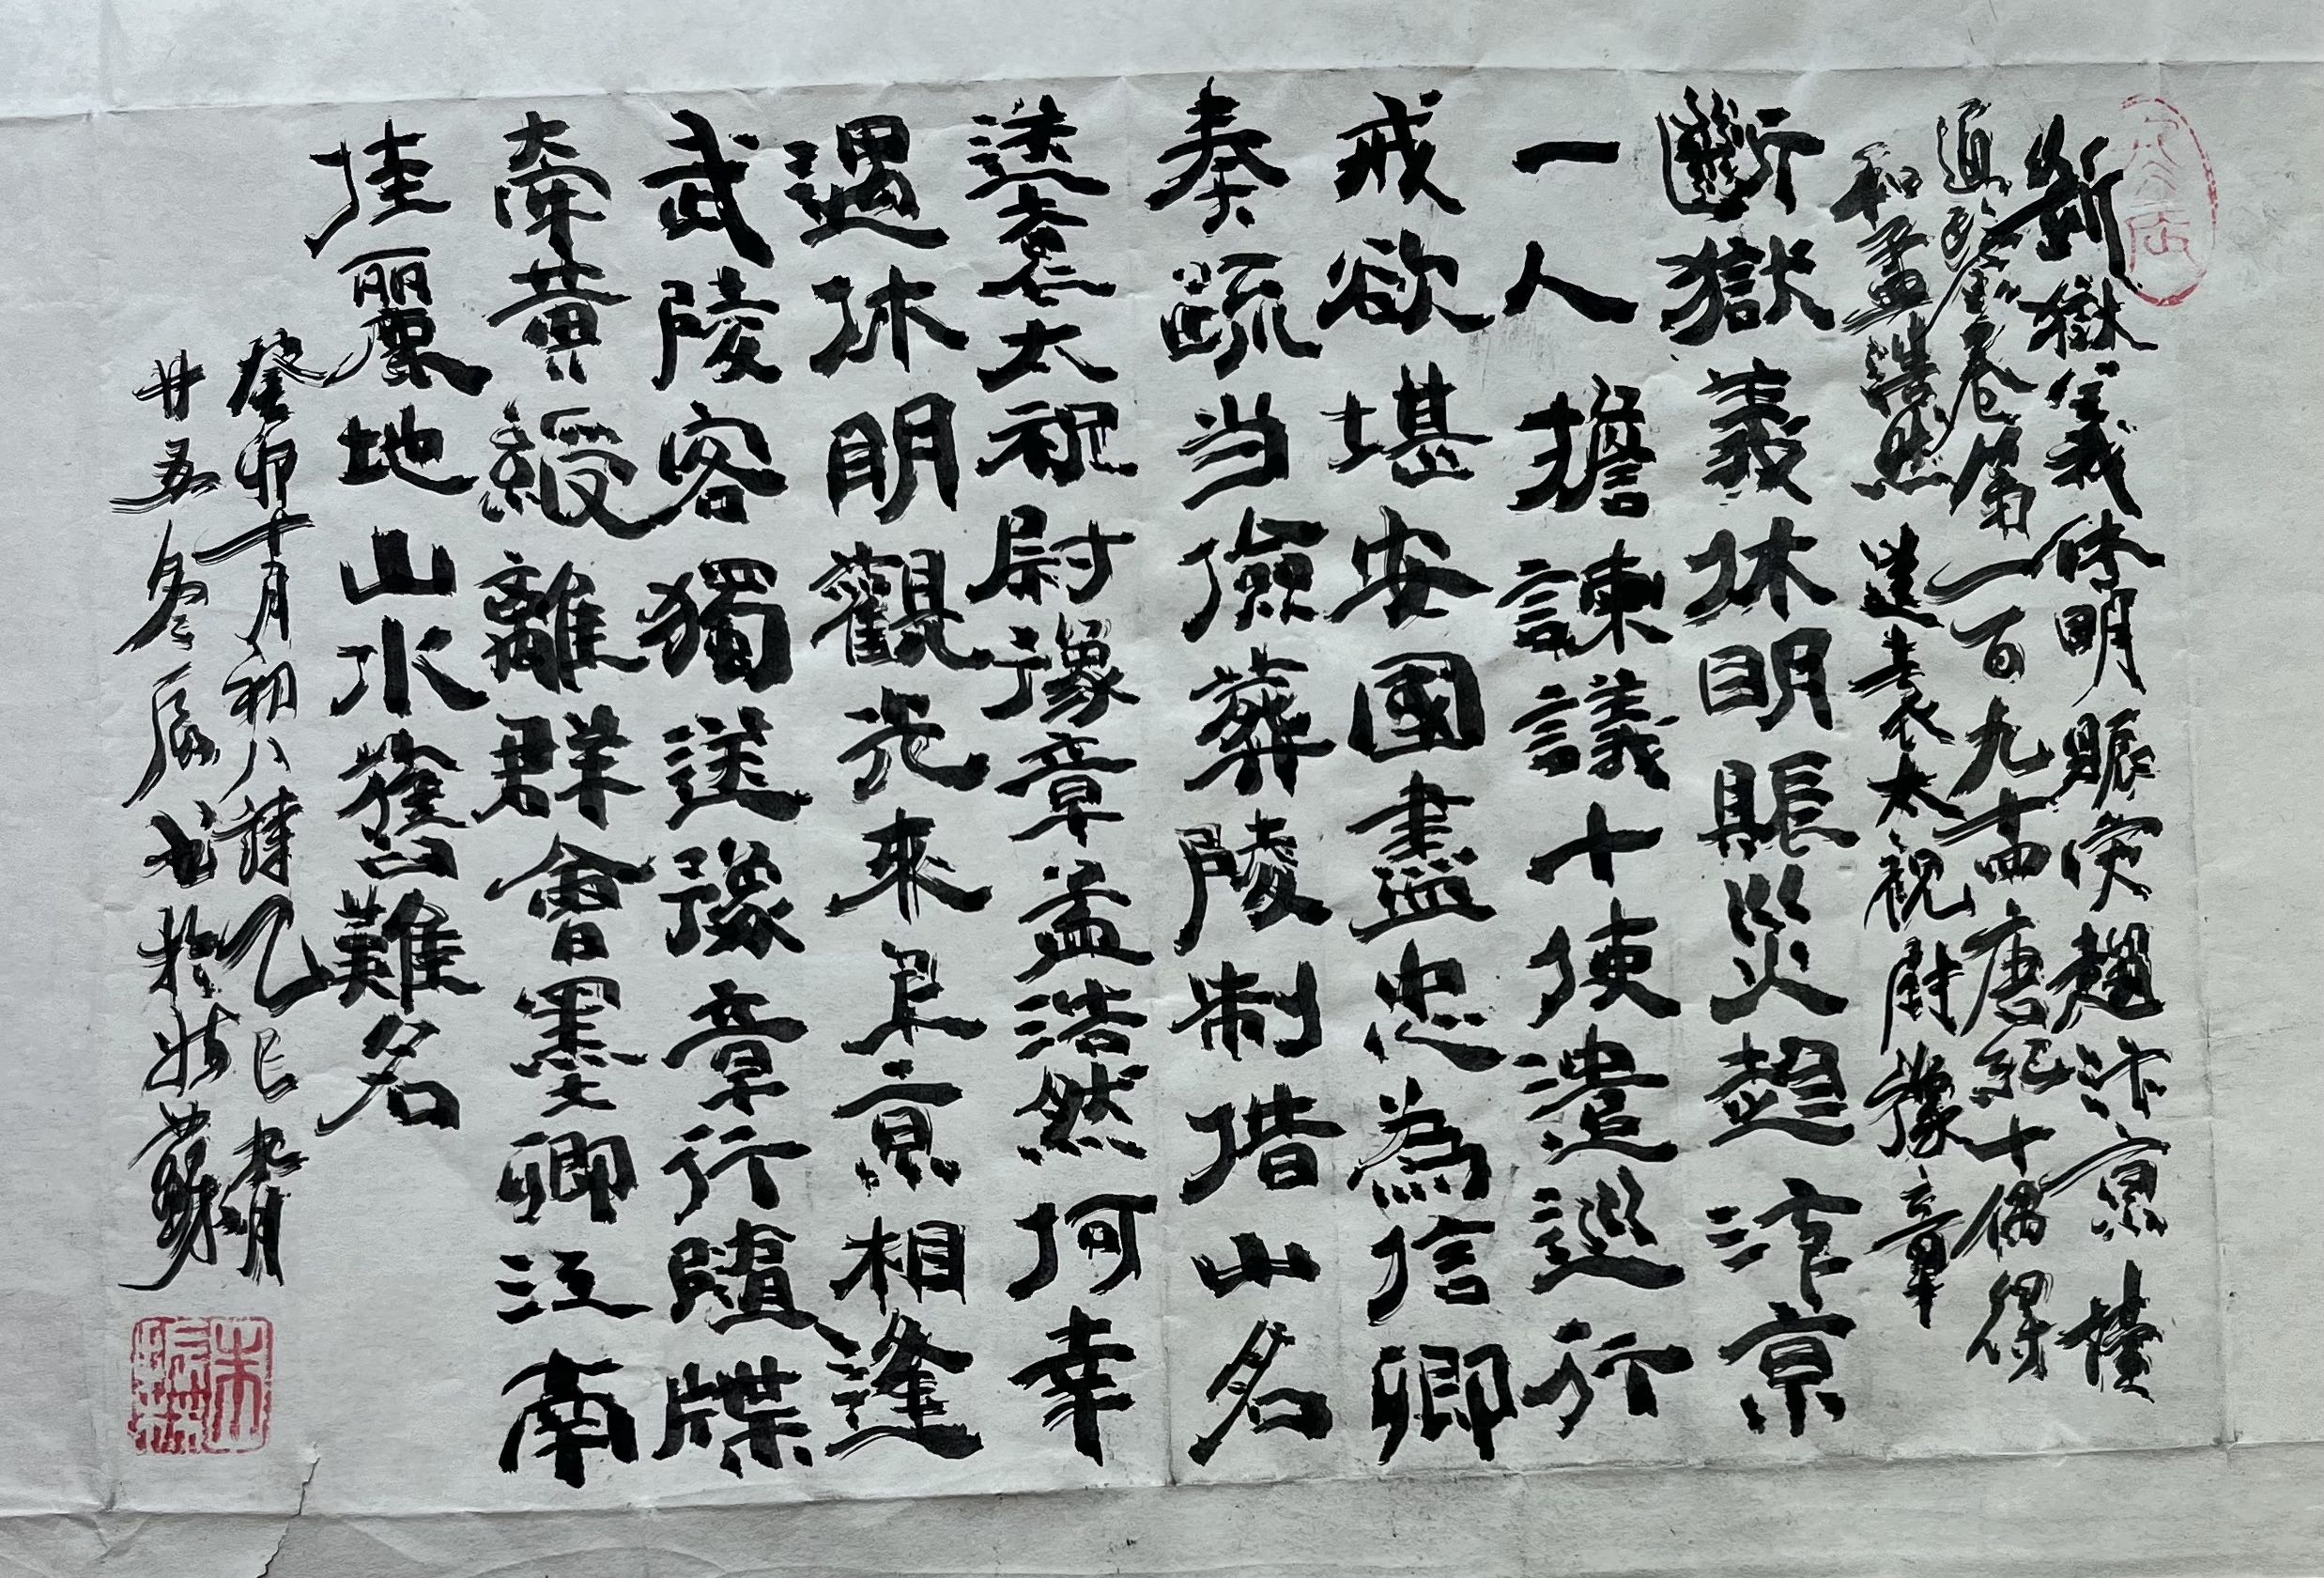 斷獄義休明賑災趨汴京
通鑒卷第一百九十四唐紀十偶得
和孟浩然送袁太祝尉豫章
斷獄義休明賑災趨汴京
一人擔諫議十使遣巡行
戒欲堪安國盡忠為信卿
奏疏当儉葬陵制借山名
送袁太祝尉豫章孟浩然何幸
遇休明觀光來上京相逢
武陵客獨送豫章行隨牒
牽黃綬離群會墨卿江南
佳麗地山水舊難名
癸卯十月初八
廿五